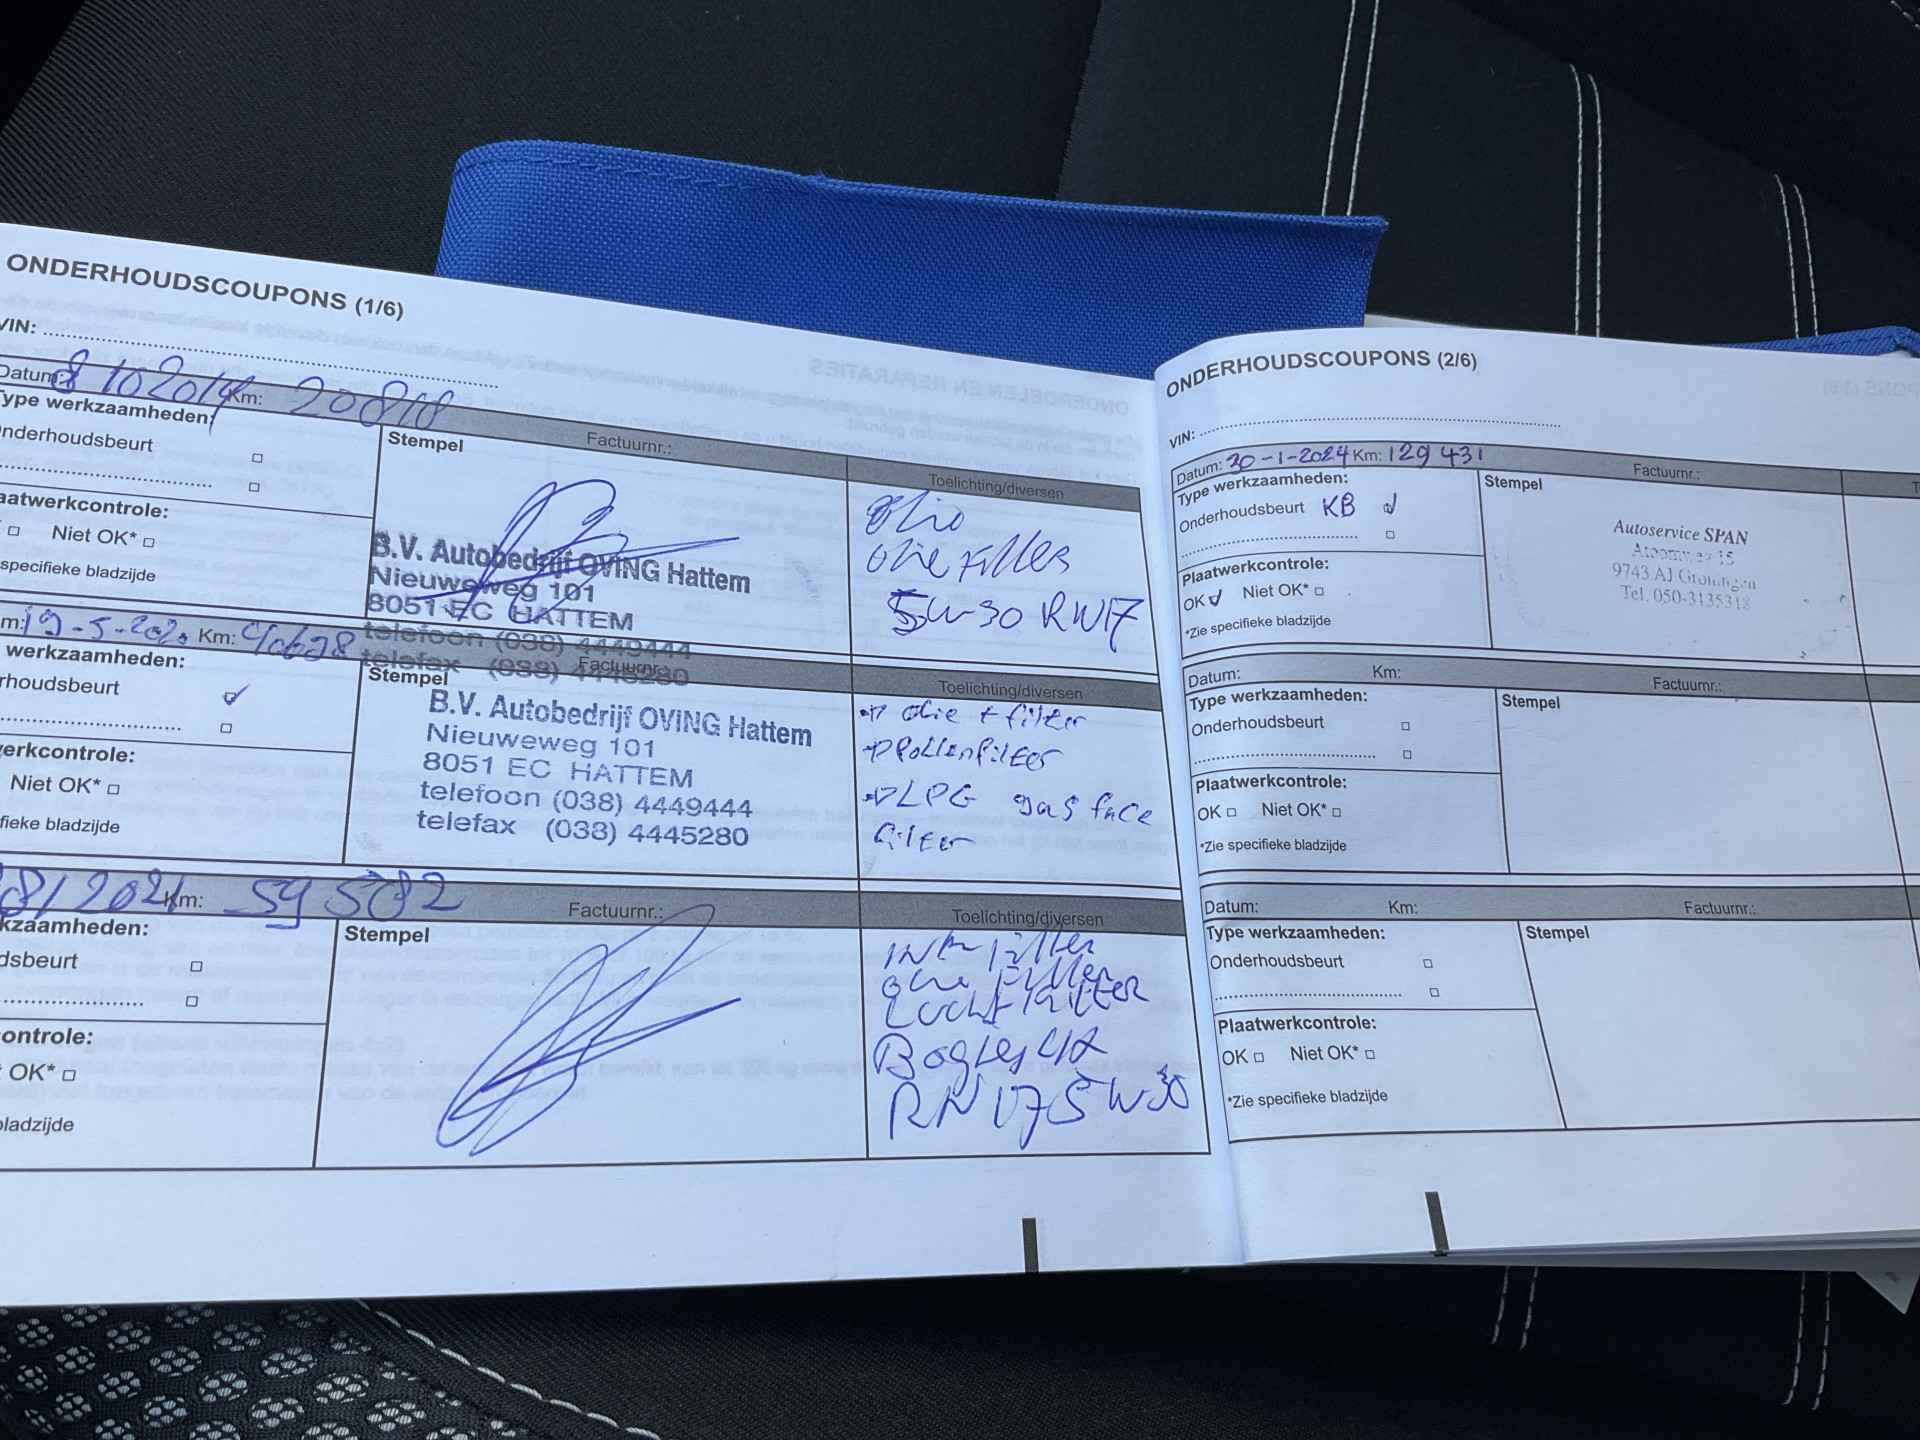 ONDERHOUDSCOUPONS (1/6)
VIN:
Datum: 8 10 2019 Km: 20818
Type werkzaamheden:
Stempel
Factuurnr.:
Toelichting/diversen
nderhoudsbeurt
aatwerkcontrole:
Niet OK*
specifieke bladzijde
B.V. Autobedrijf OVING Hattem
Nieuweweg 101
8051 EC HATTEM
telefoon (038) 4449444
telefax (038) 4445280
olie filter
5W-30 RW17
m: 19-5-2020 Km: 40628
Factuurnr.:
werkzaamheden:
Stempel
Toelichting/diversen
rhoudsbeurt
erkcontrole:
Niet OK*
fieke bladzijde
B.V. Autobedrijf OVING Hattem
Nieuweweg 101
8051 EC HATTEM
telefoon (038) 4449444
telefax (038) 4445280
→ olie + filter
→ Pollenfilter
→ LPG gas face
filter
8/2021 Km: 59 582
Factuurnr.:
kzaamheden:
Stempel
Toelichting/diversen
dsbeurt
ontrole:
OK*
ladzijde
filter
olie filter
Lucht filter
Bogies 4x
RN 17 5W30
ONDERHOUDSCOUPONS (2/6)
VIN:
Datum: 30-1-2024 Km: 129 431
Factuurnr.:
Type werkzaamheden:
Stempel
Onderhoudsbeurt KB
Plaatwerkcontrole:
OK Niet OK*
*Zie specifieke bladzijde
Autoservice SPAN
Atoomweg 15
9743 AJ Groningen
Tel. 050-3135318
Datum: Km: Factuurnr.:
Type werkzaamheden:
Stempel
Onderhoudsbeurt
Plaatwerkcontrole:
OK Niet OK*
*Zie specifieke bladzijde
Datum: Km: Factuurnr.:
Type werkzaamheden:
Stempel
Onderhoudsbeurt
Plaatwerkcontrole:
OK Niet OK*
*Zie specifieke bladzijde